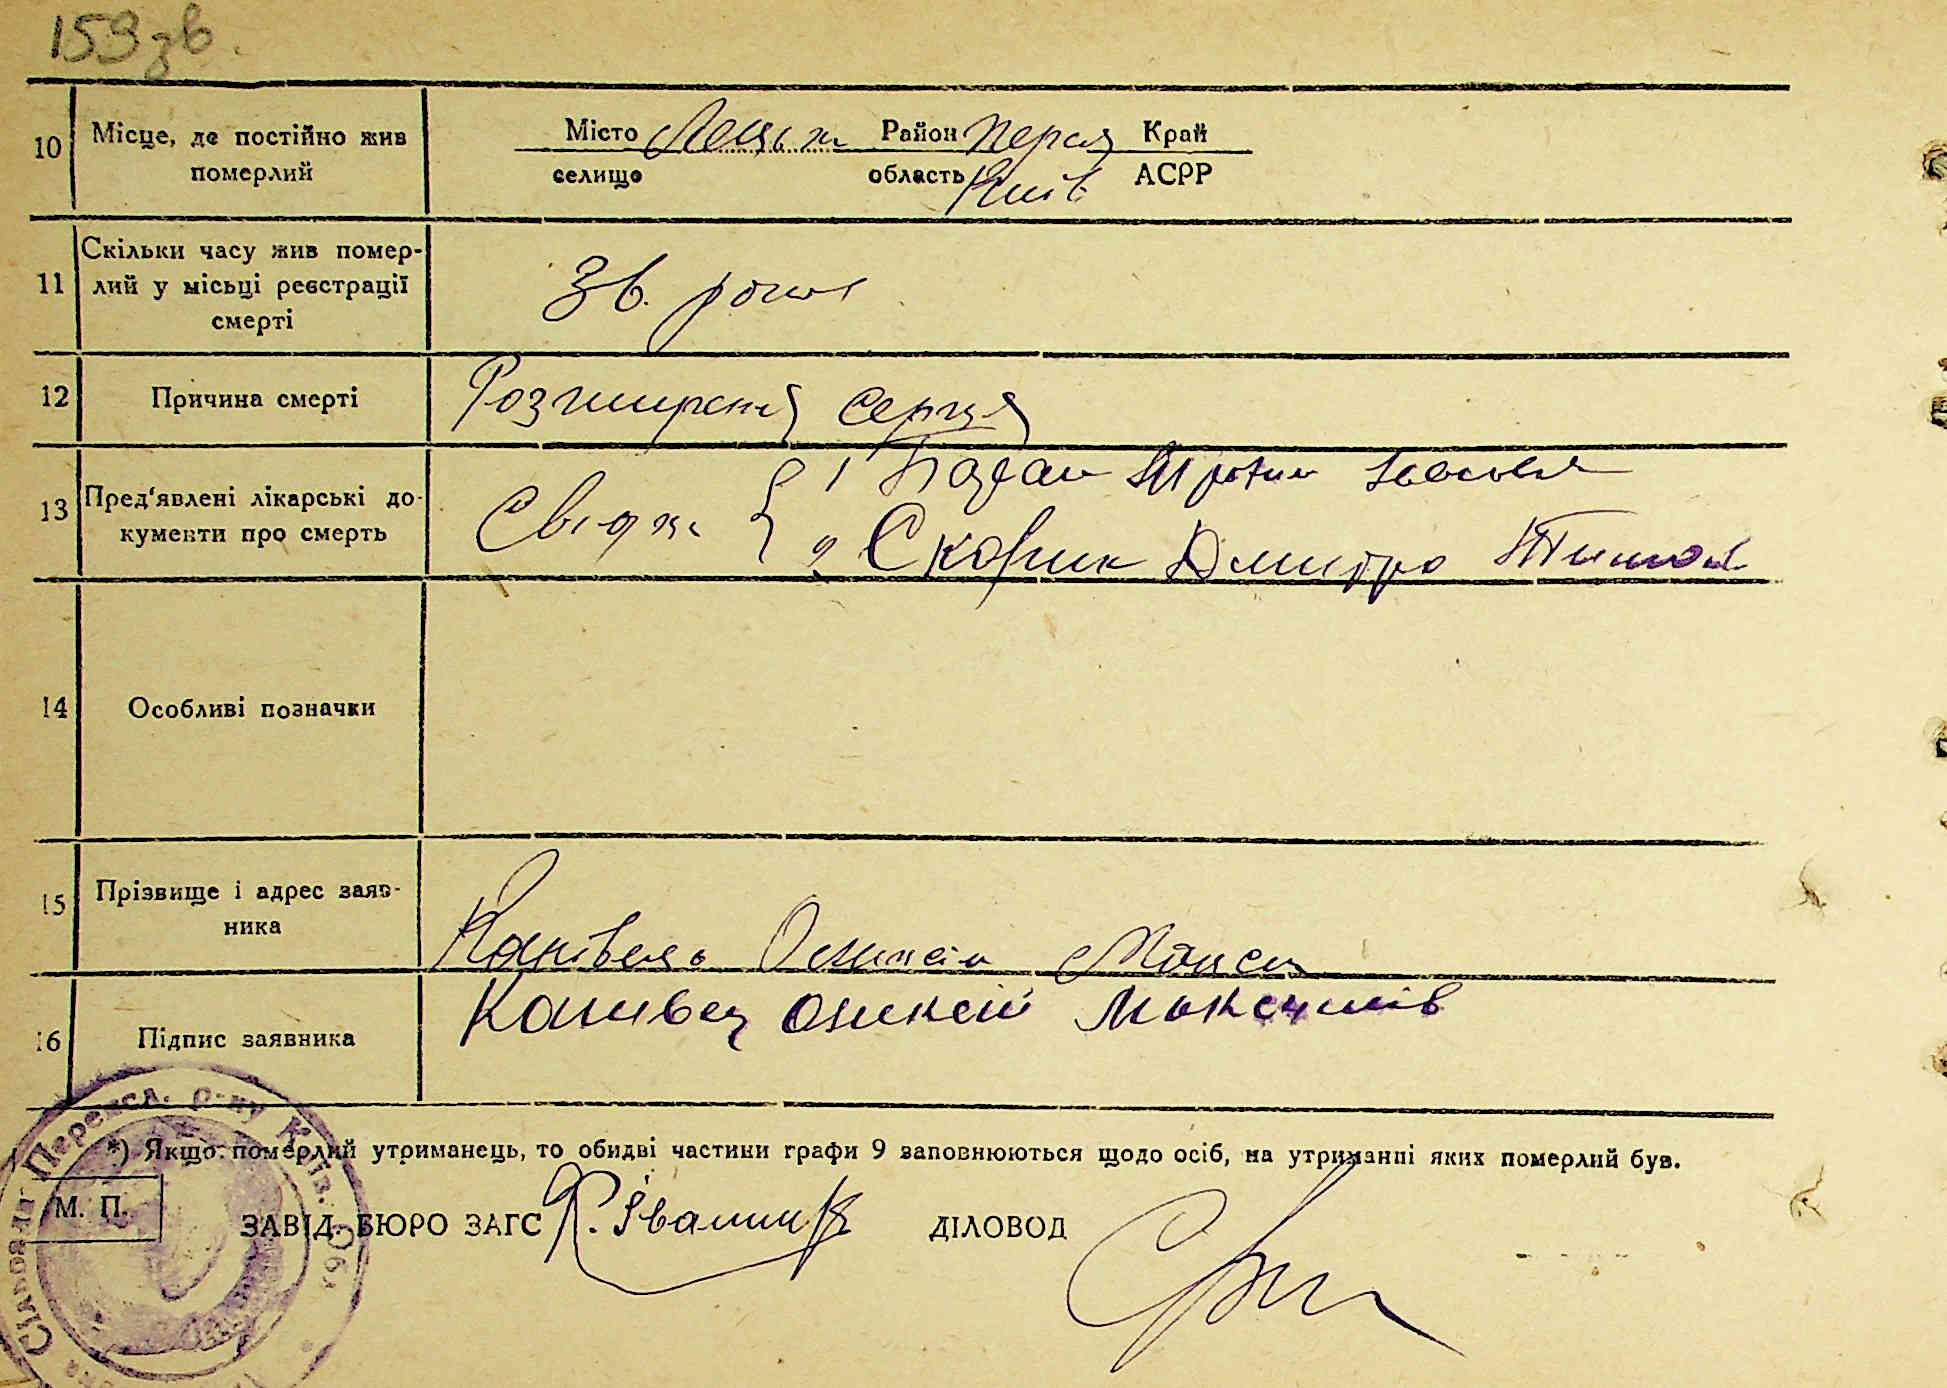 159 зв.
10 Місце, де постійно жив померлий
Місто Район Переясл Край
селище область Київ АСРР
11 Скільки часу жив помер-
лий у місьці реєстрації
смерті
Зв. роки
12 Причина смерті Розширення серця
13 Пред'явлені лікарські до-
кументи про смерть
Свідки { 1
2 Скорик Дмитро Тимоф
14 Особливі позначки
15 Прізвище і адрес заяв-
ника
Канівець Олексій Макси
16 Підпис заявника Канивец Олексій Максимів
*) Якщо померлий утриманець, то обидві частини графи 9 заповнюються щодо осіб, на утриманні яких померлий був.
М. П.
ЗАВІД. БЮРО ЗАГС ДІЛОВОД
Сільрада Переясл. р-ну Київ. Обл